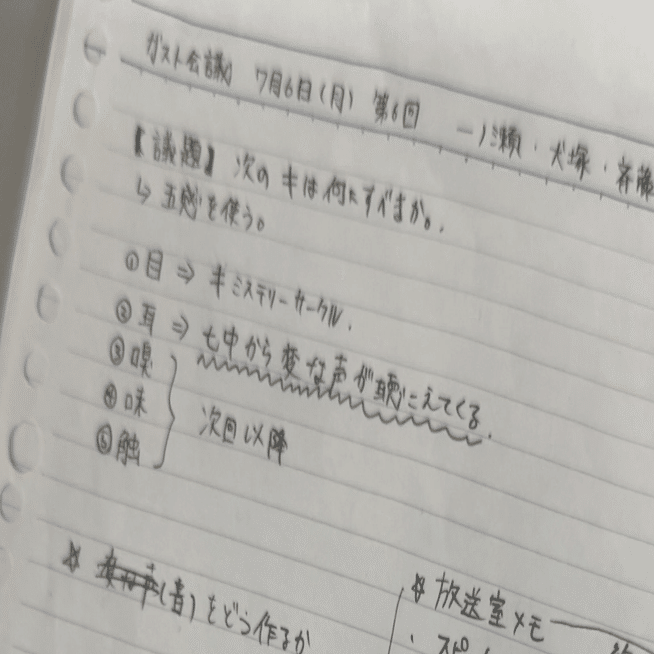 ガスト会議 7月6日(月) 第6回 一ノ瀬・犬塚・斉藤
【議題】 次の キは何にすべきか。
↳ 五感を使う。
① 目 ⇒ キミステリーサークル.
② 耳 ⇒ 七中から変な声が聴こえてくる.
③ 嗅
④ 味
⑤ 触
次回以降
(音)をどう作るか
放送室メモ